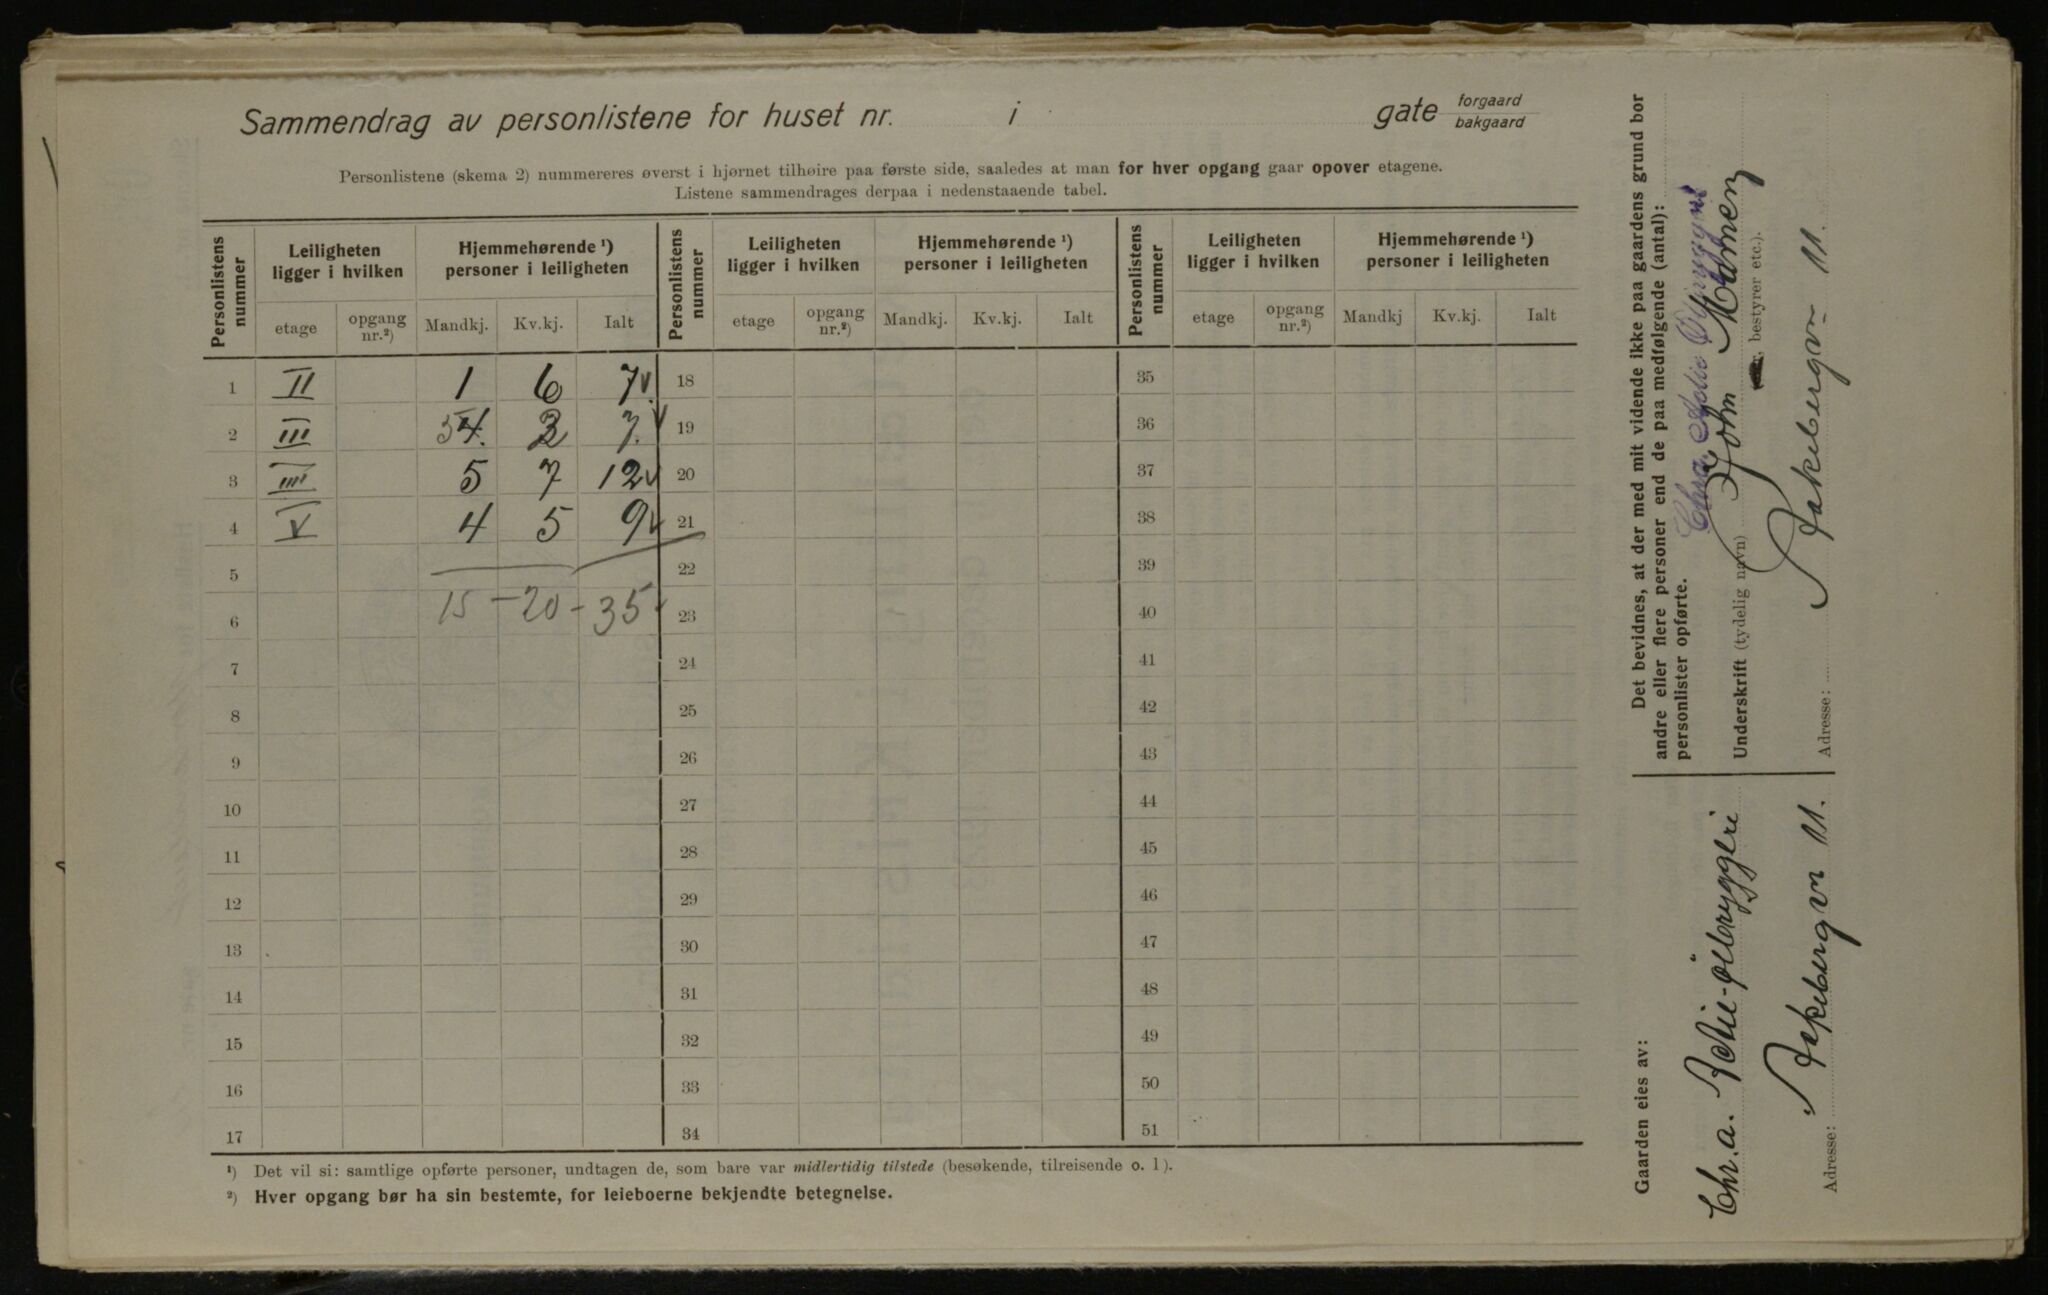 Sammendrag av personlistene for huset nr. i gate forgaard bakgaard
Personlistene (skema 2) nummereres øverst i hjørnet tilhøire paa første side, saaledes at man for hver opgang gaar opover etagene.
Listene sammendrages derpaa i nedenstaaende tabel.
Personlistens nummer | Leiligheten ligger i hvilken | Hjemmehørende ¹) personer i leiligheten | Personlistens nummer | Leiligheten ligger i hvilken | Hjemmehørende ¹) personer i leiligheten | Personlistens nummer | Leiligheten ligger i hvilken | Hjemmehørende ¹) personer i leiligheten
etage | opgang nr.²) | Mandkj. | Kv.kj. | Ialt | etage | opgang nr.²) | Mandkj. | Kv.kj. | Ialt | etage | opgang nr.²) | Mandkj | Kv.kj. | Ialt
1 II 1 6 7 18 35
2 III 5 2 7 19 36
3 IIII 5 7 12 20 37
4 V 4 5 9 21 38
5 22 39
6 15 - 20 - 35 23 40
7 24 41
8 25 42
9 26 43
10 27 44
11 28 45
12 29 46
13 30 47
14 31 48
15 32 49
16 33 50
17 34 51
¹) Det vil si: samtlige opførte personer, undtagen de, som bare var midlertidig tilstede (besøkende, tilreisende o. l).
²) Hver opgang bør ha sin bestemte, for leieboerne bekjendte betegnelse.
Det bevidnes, at der med mit vidende ikke paa gaardens grund bor
andre eller flere personer end de paa medfølgende (antal):
personlister opførte.
Chra. Aktie Ølbryggeri
Underskrift (tydelig navn) John , bestyrer etc.).
Adresse: Aakebergvn 11.
Gaarden eies av:
Chr.a. Aktie-ølbryggeri
Adresse: Aakebergvn 11.